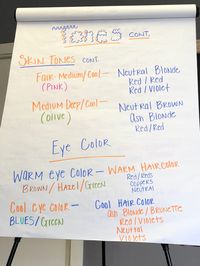 Tones CONT.
SKIN TONES CONT.
Fair-Medium/Cool - Neutral Blonde
(PINK) Red/Red
Red/Violet
Medium Deep/Cool - Neutral Brown
(Olive) Ash Blonde
Red/Red
Eye Color
Warm eye color - Warm Hair color
Brown/Hazel/Green Red/Reds
Coppers
Neutral
Cool Eye color - Cool Hair Color
Blues/Green Ash Blonde/Brunette
Red/Violets
Neutral
Violets